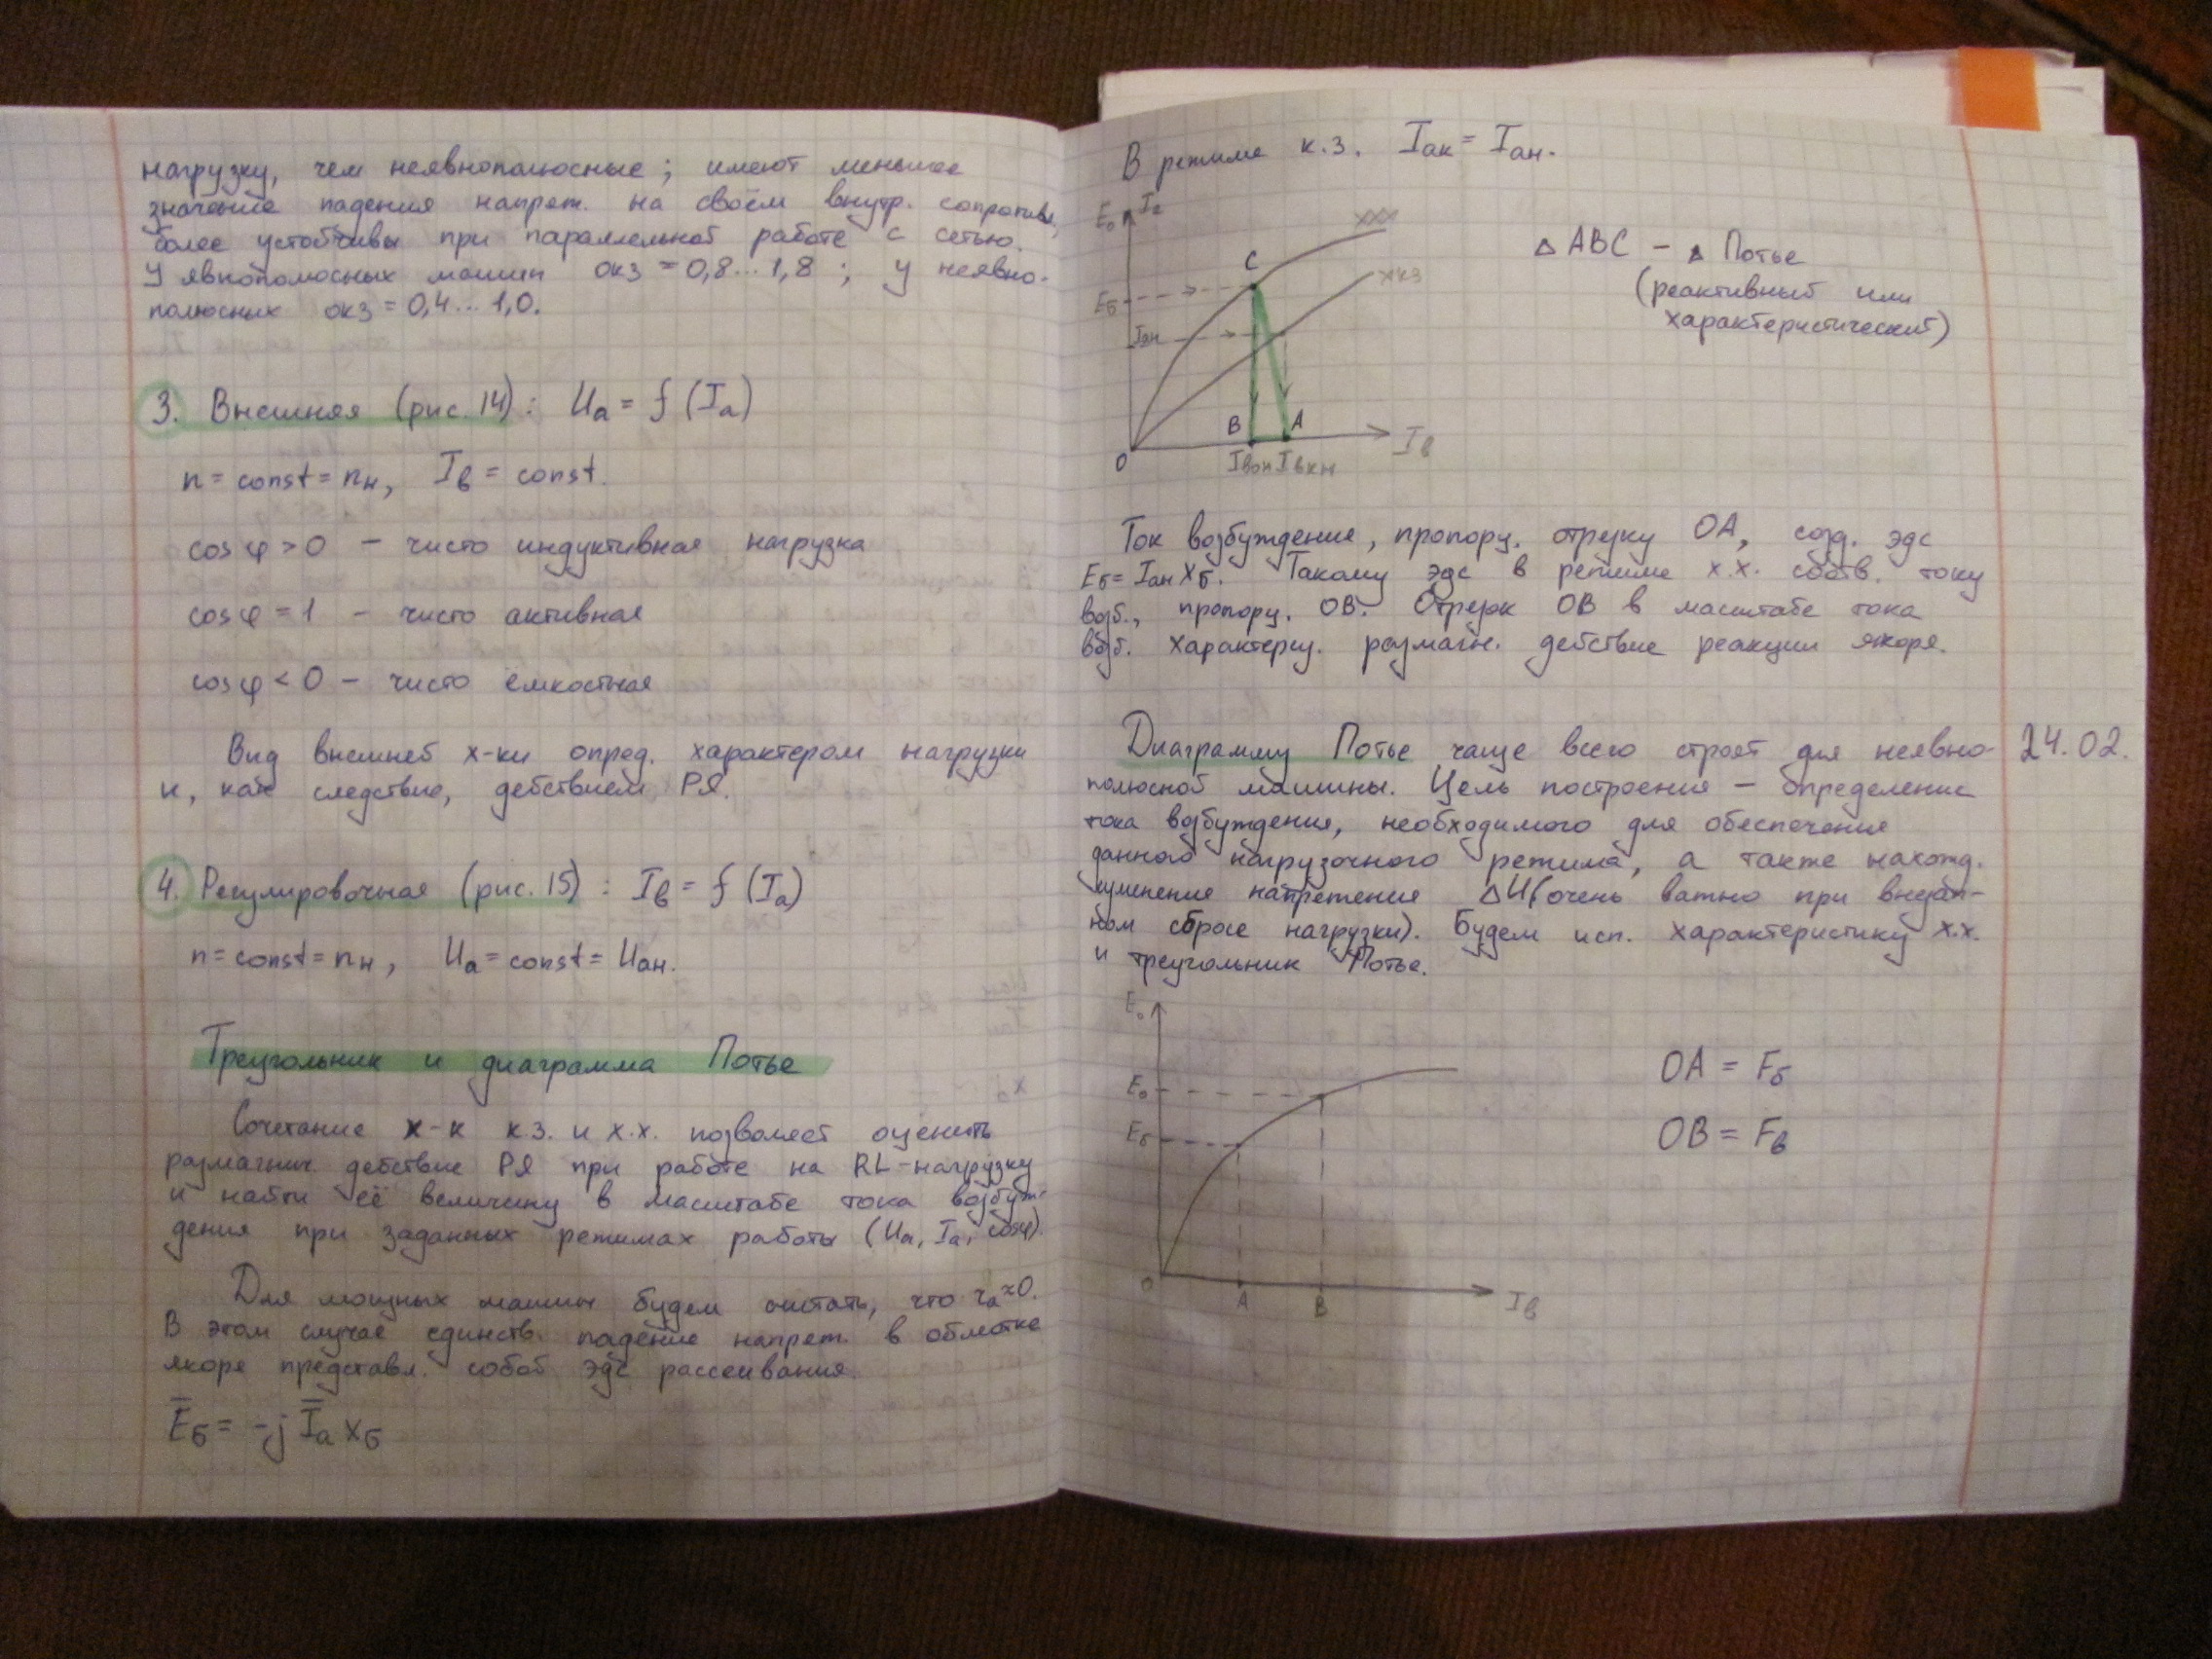 нагрузку, чем неявнополюсные; имеют меньшее
значение падения напряж. на своём внутр. сопротивл,
более устойчивы при параллельной работе с сетью.
У явнополюсных машин окз = 0,8...1,8 ; у неявно-
полюсных окз = 0,4...1,0.
3. Внешняя (рис. 14) : Uа = f (Iа)
n = const = nн, Iв = const.
cos φ > 0 – чисто индуктивная нагрузка
cos φ = 1 – чисто активная
cos φ < 0 – чисто ёмкостная
Вид внешней х-ки опред. характером нагрузки
и, как следствие, действием РЯ.
4. Регулировочная (рис. 15) : Iв = f (Iа)
n = const = nн, Uа = const = Uан.
Треугольник и диаграмма Потье
Сочетание х-к к.з. и х.х. позволяет оценить
размагнич. действие РЯ при работе на RL-нагрузку
и найти её величину в масштабе тока возбуж-
дения при заданных режимах работы (Uа, Iа, cosφ).
Для мощных машин будем считать, что rа≈0.
В этом случае единств. падение напряж. в обмотке
якоря представл. собой эдс рассеивания.
Eб = -j Iа xб
В режиме к.з. Iак = Iан.
E₀ Iк
ххх
C
хкз
Eб
Iан
B A
O Iв
Iвоп Iвкн
△ ABC – △ Потье
(реактивный или
характеристический)
Ток возбуждения, пропорц. отрезку OA, созд. эдс
Eб = Iан Xб. Такому эдс в режиме х.х. соотв. току
возб., пропорц. OB. Отрезок OB в масштабе тока
возб. характериз. размагн. действие реакции якоря.
Диаграмму Потье чаще всего строят для неявно- 24.02.
полюсной машины. Цель построения – определение
тока возбуждения, необходимого для обеспечения
данного нагрузочного режима, а также нахожд.
изменение напряжения ΔU (очень важно при внезап-
ном сбросе нагрузки). Будем исп. характеристику х.х.
и треугольник Потье.
E₀
E₀
Eб
O A B Iв
OA = Fб
OB = Fв